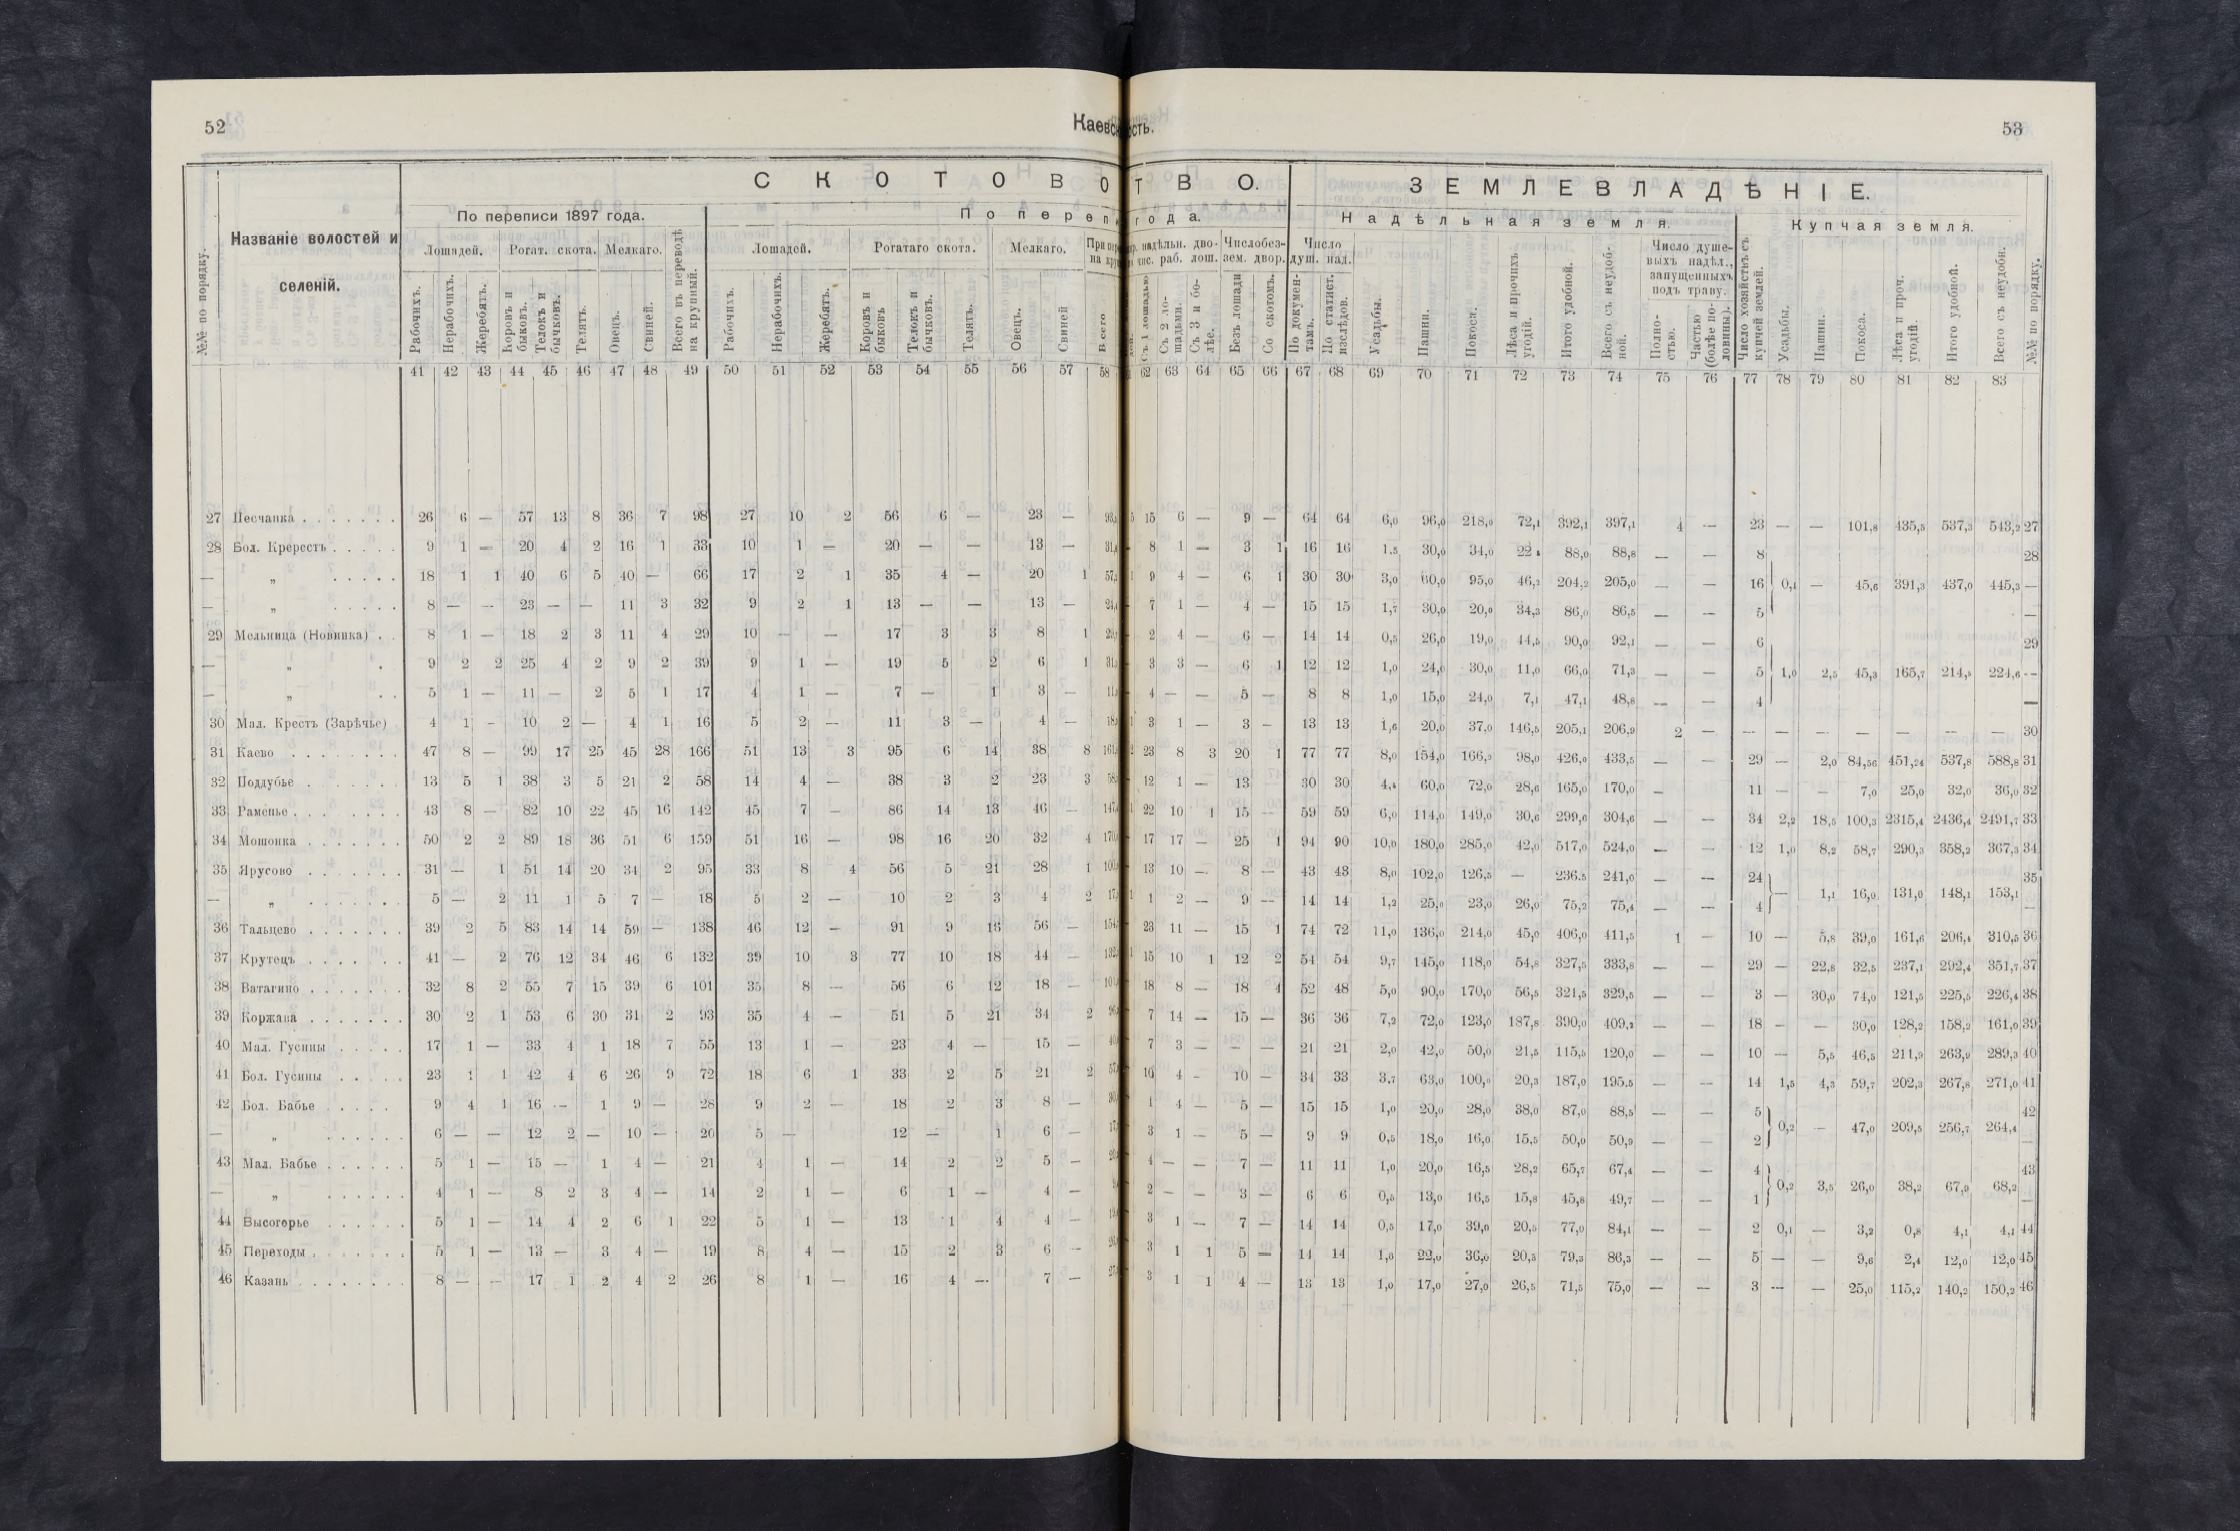 52
Каевс
ость.
53
С К О Т О В О
Т В О.
З Е М Л Е В Л А Д Ѣ Н І Е.
По переписи 1897 года.
По переп
года.
Надѣльная земля.
Купчая земля.
№№ по порядку.
Названіе волостей и селеній.
Лошадей. Рогат. скота. Мелкаго. Всего въ переводѣ на крупный.
Лошадей. Рогатаго скота. Мелкаго.
надѣльн. дво- Число без-
чис. раб. лош. зем. двор.
Число душ. над.
Число душе-выхъ надѣл., запущенныхъ подъ траву.
Рабочихъ. Нерабочихъ. Жеребятъ. Коровъ и быковъ. Телокъ и бычковъ. Телятъ. Овецъ. Свиней.
Рабочихъ. Нерабочихъ. Жеребятъ. Коровъ и быковъ Телокъ и бычковъ. Телятъ. Овецъ. Свиней Всего
Съ 1 лошадью Съ 2 ло-шадьми. Съ 3 и бо-лѣе. Безъ лошади Со скотомъ. По докумен-тамъ. По статист. изслѣдов. Усадьбы. Пашни. Покоса. Лѣса и прочихъ угодій. Итого удобной. Всего съ неудоб-ной. Полно-стью. Частью (болѣе по-ловины). Число хозяйствъ съ купчей землей. Усадьбы. Пашни. Покоса. Лѣса и проч. угодій. Итого удобной. Всего съ неудобн. №№ по порядку.
41 42 43 44 45 46 47 48 49 50 51 52 53 54 55 56 57 58 62 63 64 65 66 67 68 69 70 71 72 73 74 75 76 77 78 79 80 81 82 83
27 Песчанка 26 6 — 57 13 8 36 7 98 27 10 2 56 6 — 23 — 15 6 — 9 — 64 64 6,0 96,0 218,0 72,1 392,1 397,1 4 — 23 — — 101,8 435,5 537,3 543,2 27
28 Бол. Крересть 9 1 — 20 4 2 16 1 33 10 1 — 20 — — 13 — 8 1 — 3 1 16 16 1,5 30,0 34,0 22 88,0 88,8 — — 8 28
— „ 18 1 1 40 6 5 40 — 66 17 2 1 35 4 — 20 1 9 4 — 6 1 30 30 3,0 60,0 95,0 46,2 204,2 205,0 — — 16 0,4 — 45,6 391,3 437,0 445,3 —
— „ 8 — — 23 — — 11 3 32 9 2 1 13 — — 13 — 7 1 — 4 — 15 15 1,7 30,0 20,0 34,3 86,0 86,5 — — 5 —
29 Мельница (Новинка) 8 1 — 18 2 3 11 4 29 10 — — 17 3 3 8 1 2 4 — 6 — 14 14 0,5 26,0 19,0 44,5 90,0 92,1 — — 6 29
— „ 9 2 2 25 4 2 9 2 39 9 1 — 19 5 2 6 1 3 3 — 6 1 12 12 1,0 24,0 30,0 11,0 66,0 71,3 — — 5 1,0 2,5 45,3 165,7 214,5 224,6 —
— „ 5 1 — 11 — 2 5 1 17 4 1 — 7 — 1 3 — 4 — — 5 — 8 8 1,0 15,0 24,0 7,1 47,1 48,8 — — 4 —
30 Мал. Крестъ (Зарѣчье) 4 1 - 10 2 — 4 1 16 5 2 — 11 3 — 4 — 3 1 — 3 — 13 13 1,6 20,0 37,0 146,5 205,1 206,9 2 — — — — — — — — 30
31 Каево 47 8 — 99 17 25 45 28 166 51 13 3 95 6 14 38 8 23 8 3 20 1 77 77 8,0 154,0 166,0 98,0 426,0 433,5 — — 29 — 2,0 84,56 451,24 537,8 588,8 31
32 Поддубье 13 5 1 38 3 5 21 2 58 14 4 — 38 3 2 23 3 12 1 — 13 30 30 4,4 60,0 72,0 28,6 165,0 170,0 — 11 — — 7,0 25,0 32,0 36,0 32
33 Раменье 43 8 — 82 10 22 45 16 142 45 7 — 86 14 13 46 — 22 10 1 15 — 59 59 6,0 114,0 149,0 30,6 299,6 304,6 — — 34 2,2 18,5 100,3 2315,4 2436,4 2491,7 33
34 Мошонка 50 2 2 89 18 36 51 6 159 51 16 — 98 16 20 32 4 17 17 — 25 1 94 90 10,0 180,0 285,0 42,0 517,0 524,0 — — 12 1,0 8,2 58,7 290,3 358,2 367,3 34
35 Ярусово 31 — 1 51 14 20 34 2 95 33 8 4 56 5 21 28 1 13 10 — 8 — 43 43 8,0 102,0 126,5 — 236.5 241,0 — — 24 35
— „ 5 — 2 11 1 5 7 — 18 5 2 — 10 2 3 4 2 1 2 — 9 — 14 14 1,2 25,0 23,0 26,0 75,2 75,4 — — 4 — 1,1 16,0 131,0 148,1 153,1 —
36 Тальцево 39 2 5 83 14 14 59 — 138 46 12 — 91 9 16 56 — 23 11 — 15 1 74 72 11,0 136,0 214,0 45,0 406,0 411,5 1 — 10 — 5,8 39,0 161,6 206,4 310,5 36
37 Крутецъ 41 — 2 76 12 34 46 6 132 39 10 3 77 10 18 44 — 15 10 1 12 2 54 54 9,7 145,0 118,0 54,8 327,5 333,8 — — 29 — 22,8 32,5 237,1 292,4 351,7 37
38 Ватагино 32 8 2 55 7 15 39 6 101 35 8 — 56 6 12 18 — 18 8 — 18 4 52 48 5,0 90,0 170,0 56,5 321,5 329,5 — — 3 — 30,0 74,0 121,5 225,5 226,4 38
39 Коржава 30 2 1 53 6 30 31 2 93 35 4 — 51 5 21 34 2 7 14 — 15 — 36 36 7,2 72,0 123,0 187,8 390,0 409,2 — — 18 — — 30,0 128,2 158,2 161,0 39
40 Мал. Гусины 17 1 — 33 4 1 18 7 55 13 1 — 23 4 — 15 — 7 3 — — — 21 21 2,0 42,0 50,0 21,5 115,5 120,0 — — 10 — 5,5 46,5 211,9 263,9 289,3 40
41 Бол. Гусины 23 1 1 42 4 6 26 9 72 18 6 1 33 2 5 21 2 10 4 - 10 — 34 33 3,7 63,0 100,0 20,3 187,0 195.5 — — 14 1,5 4,3 59,7 202,3 267,8 271,0 41
42 Бол. Бабье 9 4 1 16 — 1 9 — 28 9 2 — 18 2 3 8 — 1 4 — 5 — 15 15 1,0 20,0 28,0 38,0 87,0 88,5 — — 5 42
— „ 6 — — 12 2 — 10 — 20 5 — 12 — 1 6 — 3 1 — 5 — 9 9 0,5 18,0 16,0 15,5 50,0 50,9 — — 2 0,2 — 47,0 209,5 256,7 264,4 —
43 Мал. Бабье 5 1 — 15 — 1 4 — 21 4 1 — 14 2 2 5 — 4 — — 7 — 11 11 1,0 20,0 16,5 28,2 65,7 67,4 — — 4 43
— „ 4 1 — 8 2 3 4 — 14 2 1 — 6 1 — 4 — 2 — — 3 — 6 6 0,5 13,0 16,5 15,8 45,8 49,7 — — 1 0,2 3,5 26,0 38,2 67,9 68,2 —
44 Высогорье 5 1 — 14 4 2 6 1 22 5 1 — 13 1 4 4 — 3 1 — 7 — 14 14 0,5 17,0 39,0 20,5 77,0 84,1 — — 2 0,1 — 3,2 0,8 4,1 4,1 44
45 Переходы 5 1 — 13 — 3 4 — 19 8 4 — 15 2 3 6 — 3 1 1 5 — 14 14 1,0 22,0 36,0 20,3 79,3 86,3 — — 5 — — 9,6 2,4 12,0 12,0 45
46 Казань 8 — — 17 1 2 4 2 26 8 1 — 16 4 — 7 — 3 1 1 4 — 13 13 1,0 17,0 27,0 26,5 71,5 75,0 — — 3 — — 25,0 115,2 140,2 150,2 46